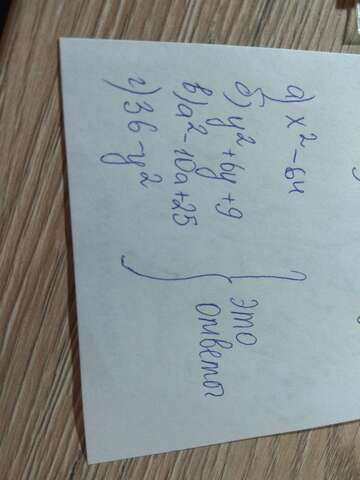 а) x² - 64
б) y² + 6y + 9
в) a² - 10a + 25
г) 36 - y²
это
ответы